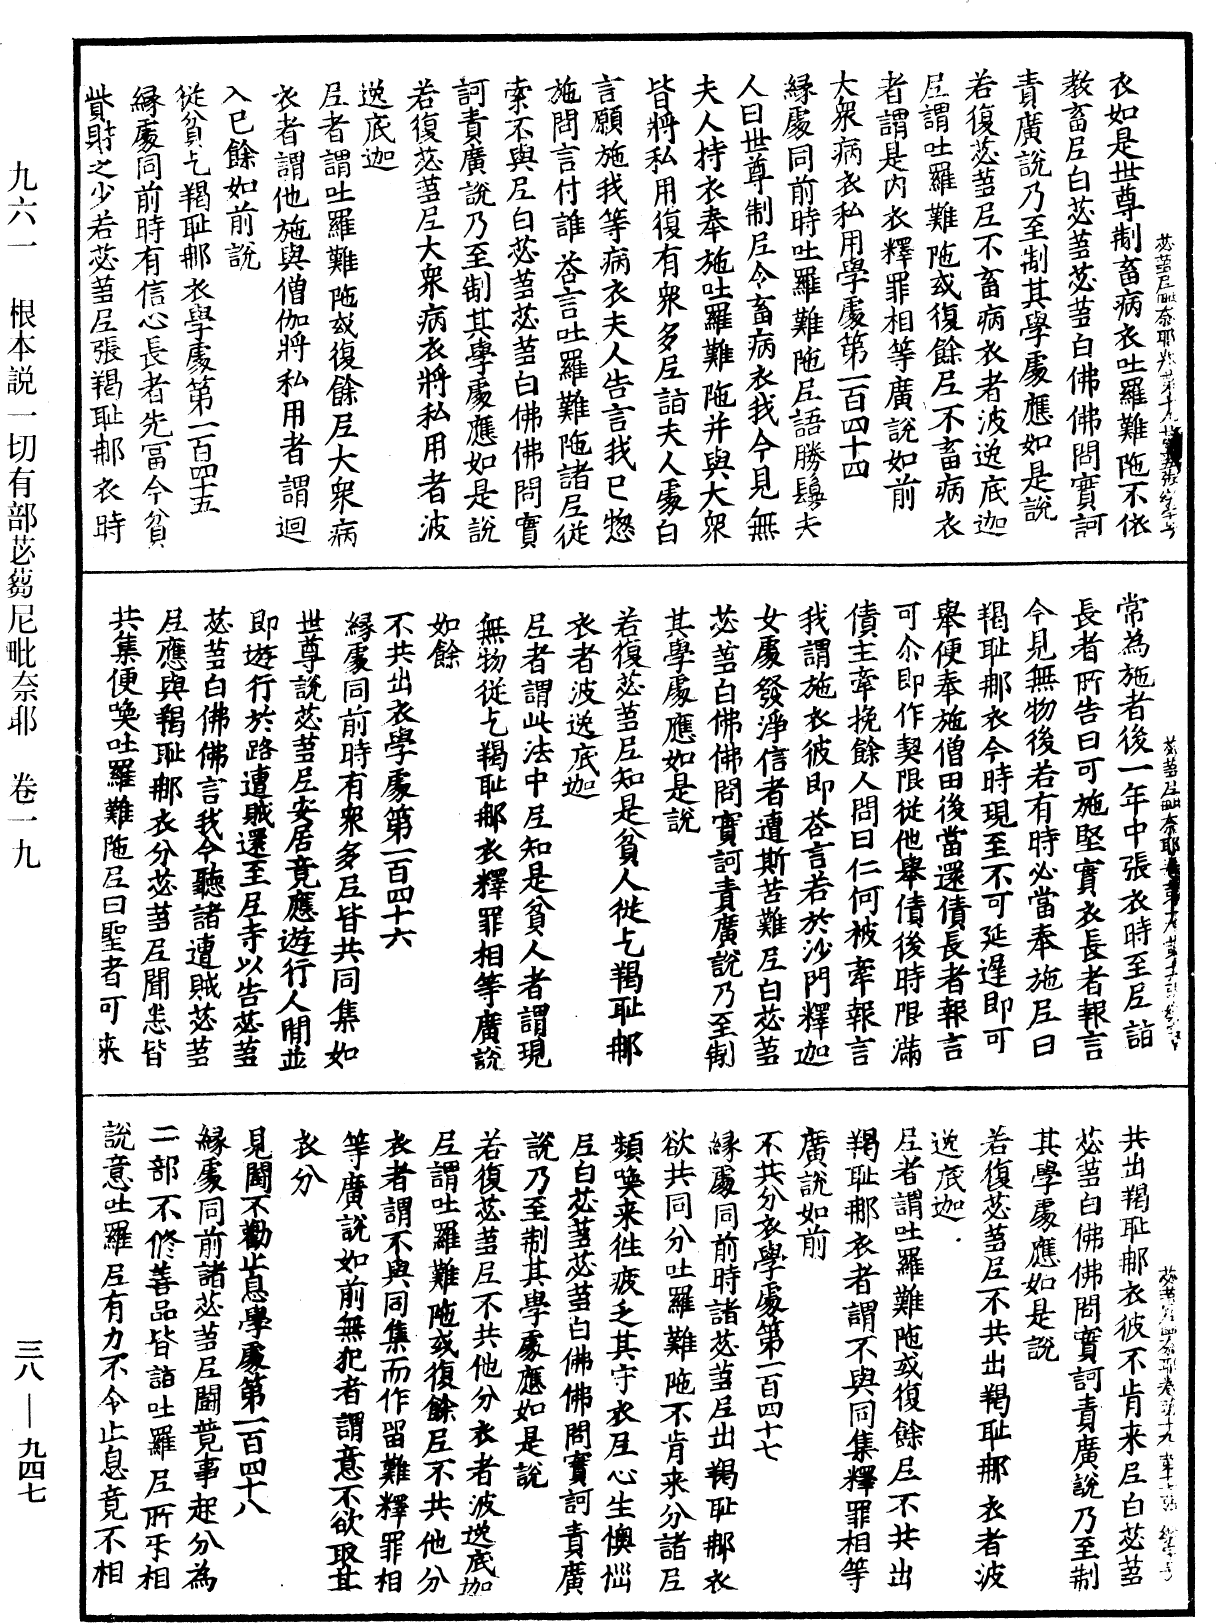 衣如是世尊制畜病衣吐羅難陁不依
教畜尼白苾芻苾芻白佛佛問實訶
責廣說乃至制其學處應如是說
若復苾芻尼不畜病衣者波逸底迦
尼謂吐羅難陁或復餘尼不畜病衣
者謂是內衣釋罪相等廣說如前
大衆病衣私用學處第一百四十四
緣處同前時吐羅難陁尼語勝鬘夫
人曰世尊制尼令畜病衣我今見無
夫人持衣奉施吐羅難陁并與大衆
皆將私用復有衆多尼詣夫人處白
言願施我等病衣夫人告言我已惣
施問言付誰荅言吐羅難陁諸尼從
索不與尼白苾芻苾芻白佛佛問實
訶責廣說乃至制其學處應如是說
若復苾芻尼大衆病衣將私用者波
逸底迦
尼者謂吐羅難陁或復餘尼大衆病
衣者謂他施與僧伽將私用者謂迴
入已餘如前說
從貧乞羯耻那衣學處第一百四十五
緣處同前時有信心長者先富今貧
貲財之少若苾芻尼張羯耻那衣時
常為施者後一年中張衣時至尼詣
長者所告曰可施堅實衣長者報言
今見無物後若有時必當奉施尼曰
羯耻那衣今時現至不可延遲即可
舉便奉施僧田後當還債長者報言
可尒即作契限從他舉債後時限滿
債主牽挽餘人問曰仁何被牽報言
我謂施衣彼即荅言若於沙門釋迦
女處發淨信者遭斯苦難尼白苾芻
苾芻白佛佛問實訶責廣說乃至制
其學處應如是說
若復苾芻尼知是貧人從乞羯耻那
衣者波逸底迦
尼者謂此法中尼知是貧人者謂現
無物從乞羯耻那衣釋罪相等廣說
如餘
不共出衣學處第一百四十六
緣處同前時有衆多尼皆共同集如
世尊說苾芻尼安居竟應遊行人間並
即遊行於路遭賊還至尼寺以告苾芻
苾芻白佛佛言我今聽諸遭賊苾芻
尼應與羯耻那衣分苾芻尼聞悉皆
共集便喚吐羅難陁尼曰聖者可來
共出羯耻那衣彼不肯来尼白苾芻
苾芻白佛佛問實訶責廣說乃至制
其學處應如是說
若復苾芻尼不共出羯耻那衣者波
逸底迦
尼者謂吐羅難陁或復餘尼不共出
羯耻那衣者謂不與同集釋罪相等
廣說如前
不共分衣學處第一百四十七
緣處同前時諸苾芻尼出羯耻那衣
欲共同分吐羅難陁不肯来分諸尼
頻喚来往疲乏其守衣尼心生懊惱
尼白苾芻苾芻白佛佛問實訶責廣
說乃至制其學處應如是說
若復苾芻尼不共他分衣者波逸底迦
尼謂吐羅難陁或復餘尼不共他分
衣者謂不與同集而作留難釋罪相
等廣說如前無犯者謂意不欲取其
衣分
見鬪不勸止息學處第一百四十八
緣處同前諸苾芻尼鬪競事起分為
二部不修善品皆詣吐羅尼所求相
說意吐羅尼有力不令止息竟不相
九六一　根本說一切有部苾芻尼毗奈耶　卷一九
三八—九四七